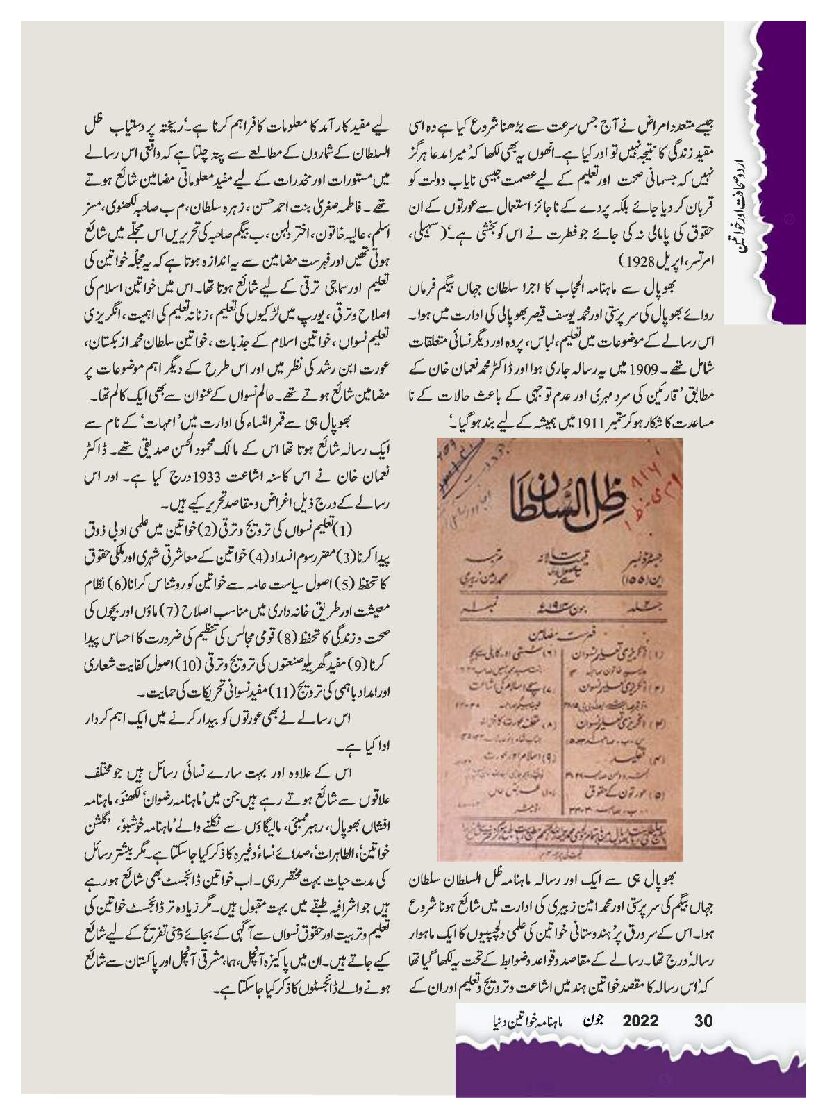 اردو صحافت اور خواتین
جیسے متعدد امراض نے آج جس سرعت سے بڑھنا شروع کیا ہے وہ اسی
مقید زندگی کا نتیجہ نہیں تو اور کیا ہے۔ انھوں یہ بھی لکھا کہ ’میرا مدعا ہرگز
نہیں کہ جسمانی صحت اور تعلیم کے لیے عصمت جیسی نایاب دولت کو
قربان کر دیا جائے بلکہ پردے کے ناجائز استعمال سے عورتوں کے ان
حقوق کی پامالی نہ کی جائے جو فطرت نے اس کو بخشی ہے۔‘ (سہیلی،
امرتسر، اپریل 1928)
بھوپال سے ماہنامہ الحجاب کا اجرا سلطان جہاں بیگم فرماں
روائے بھوپال کی سرپرستی اور محمد یوسف قیصر بھوپالی کی ادارت میں ہوا۔
اس رسالے کے موضوعات میں تعلیم، لباس، پردہ اور دیگر نسائی متعلقات
شامل تھے۔ 1909 میں یہ رسالہ جاری ہوا اور ڈاکٹر محمد نعمان خان کے
مطابق ’قارئین کی سرد مہری اور عدم توجہی کے باعث حالات کے نا
مساعدت کا شکار ہو کر ستمبر 1911 میں ہمیشہ کے لیے بند ہو گیا۔‘
ظل السلطان
فہرست مضامین
بھوپال ہی سے ایک اور رسالہ ماہنامہ ظل السلطان سلطان
جہاں بیگم کی سرپرستی اور محمد امین زبیری کی ادارت میں شائع ہونا شروع
ہوا۔ اس کے سرورق پر ’ہندوستانی خواتین کی علمی دلچسپیوں کا ایک ماہوار
رسالہ‘ درج تھا۔ رسالے کے مقاصد و قواعد و ضوابط کے تحت یہ لکھا گیا تھا
کہ ’اس رسالہ کا مقصد خواتین ہند میں اشاعت و ترویج و تعلیم اور ان کے
لیے مفید کار آمد کا معلومات کا فراہم کرنا ہے۔‘ ریختہ پر دستیاب ظل
السلطان کے شماروں کے مطالعے سے پتہ چلتا ہے کہ واقعی اس رسالے
میں مستورات اور مخدرات کے لیے مفید معلوماتی مضامین شائع ہوتے
تھے۔ فاطمہ صغریٰ بنت احمد حسن، زہرہ سلطان، م ب صاحبہ لکھنوی، مسز
اسلم، عالیہ خاتون، اختر دلہن، ب بیگم صاحبہ کی تحریریں اس مجلّے میں شائع
ہوتی تھیں اور فہرست مضامین سے یہ اندازہ ہوتا ہے کہ یہ مجلہ خواتین کی
تعلیم اور سماجی ترقی کے لیے شائع ہوتا تھا۔ اس میں خواتین اسلام کی
اصلاح و ترقی، یورپ میں لڑکیوں کی تعلیم، زنانہ تعلیم کی اہمیت، انگریزی
تعلیم نسواں، خواتین اسلام کے جذبات، خواتین سلطان محمد ازبکستان،
عورت ابن رشد کی نظر میں اور اس طرح کے دیگر اہم موضوعات پر
مضامین شائع ہوتے تھے۔ عالم نسواں کے عنوان سے بھی ایک کالم تھا۔
بھوپال ہی سے قمر النساء کی ادارت میں ’امہات‘ کے نام سے
ایک رسالہ شائع ہوتا تھا اس کے مالک محمود الحسن صدیقی تھے۔ ڈاکٹر
نعمان خان نے اس کا سنہ اشاعت 1933 درج کیا ہے۔ اور اس
رسالے کے درج ذیل اغراض و مقاصد تحریر کیے ہیں۔
(1) تعلیم نسواں کی ترویج و ترقی (2) خواتین میں علمی ادبی ذوق
پیدا کرنا (3) مضر رسوم انسداد (4) خواتین کے معاشرتی شہری اور ملکی حقوق
کا تحفظ (5) اصول سیاست عامہ سے خواتین کو روشناس کرانا (6) نظام
معیشت اور طریق خانہ داری میں مناسب اصلاح (7) ماؤں اور بچوں کی
صحت و زندگی کا تحفظ (8) قومی مجالس کی تنظیم کی ضرورت کا احساس پیدا
کرنا (9) مفید گھریلو صنعتوں کی ترویج و ترقی (10) اصول کفایت شعاری
اور امداد باہمی کی ترویج (11) مفید نسوانی تحریکات کی حمایت۔
اس رسالے نے بھی عورتوں کو بیدار کرنے میں ایک اہم کردار
ادا کیا ہے۔
اس کے علاوہ اور بہت سارے نسائی رسائل ہیں جو مختلف
علاقوں سے شائع ہوتے رہے ہیں جن میں ’ماہنامہ رضوان‘ لکھنؤ، ماہنامہ
افشاں بھوپال، رہبر ممبئی، مالیگاؤں سے نکلنے والے ’ماہنامہ خوشبو‘، ’گلشن
خواتین‘، الطاہرات‘، صدائے نساء‘ وغیرہ کا ذکر کیا جا سکتا ہے۔ مگر بیشتر رسائل
کی مدت حیات بہت مختصر رہی۔ اب خواتین ڈائجسٹ بھی شائع ہو رہے
ہیں جو اشرافیہ طبقے میں بہت مقبول ہیں۔ مگر زیادہ تر ڈائجسٹ خواتین کی
تعلیم و تربیت اور حقوق نسواں سے آگہی کے بجائے ذہنی تفریح کے لیے شائع
کیے جاتے ہیں۔ ان میں پاکیزہ آنچل، ہما، مشرقی آنچل اور پاکستان سے شائع
ہونے والے ڈائجسٹوں کا ذکر کیا جا سکتا ہے۔
30 2022 جون ماہنامہ خواتین دنیا